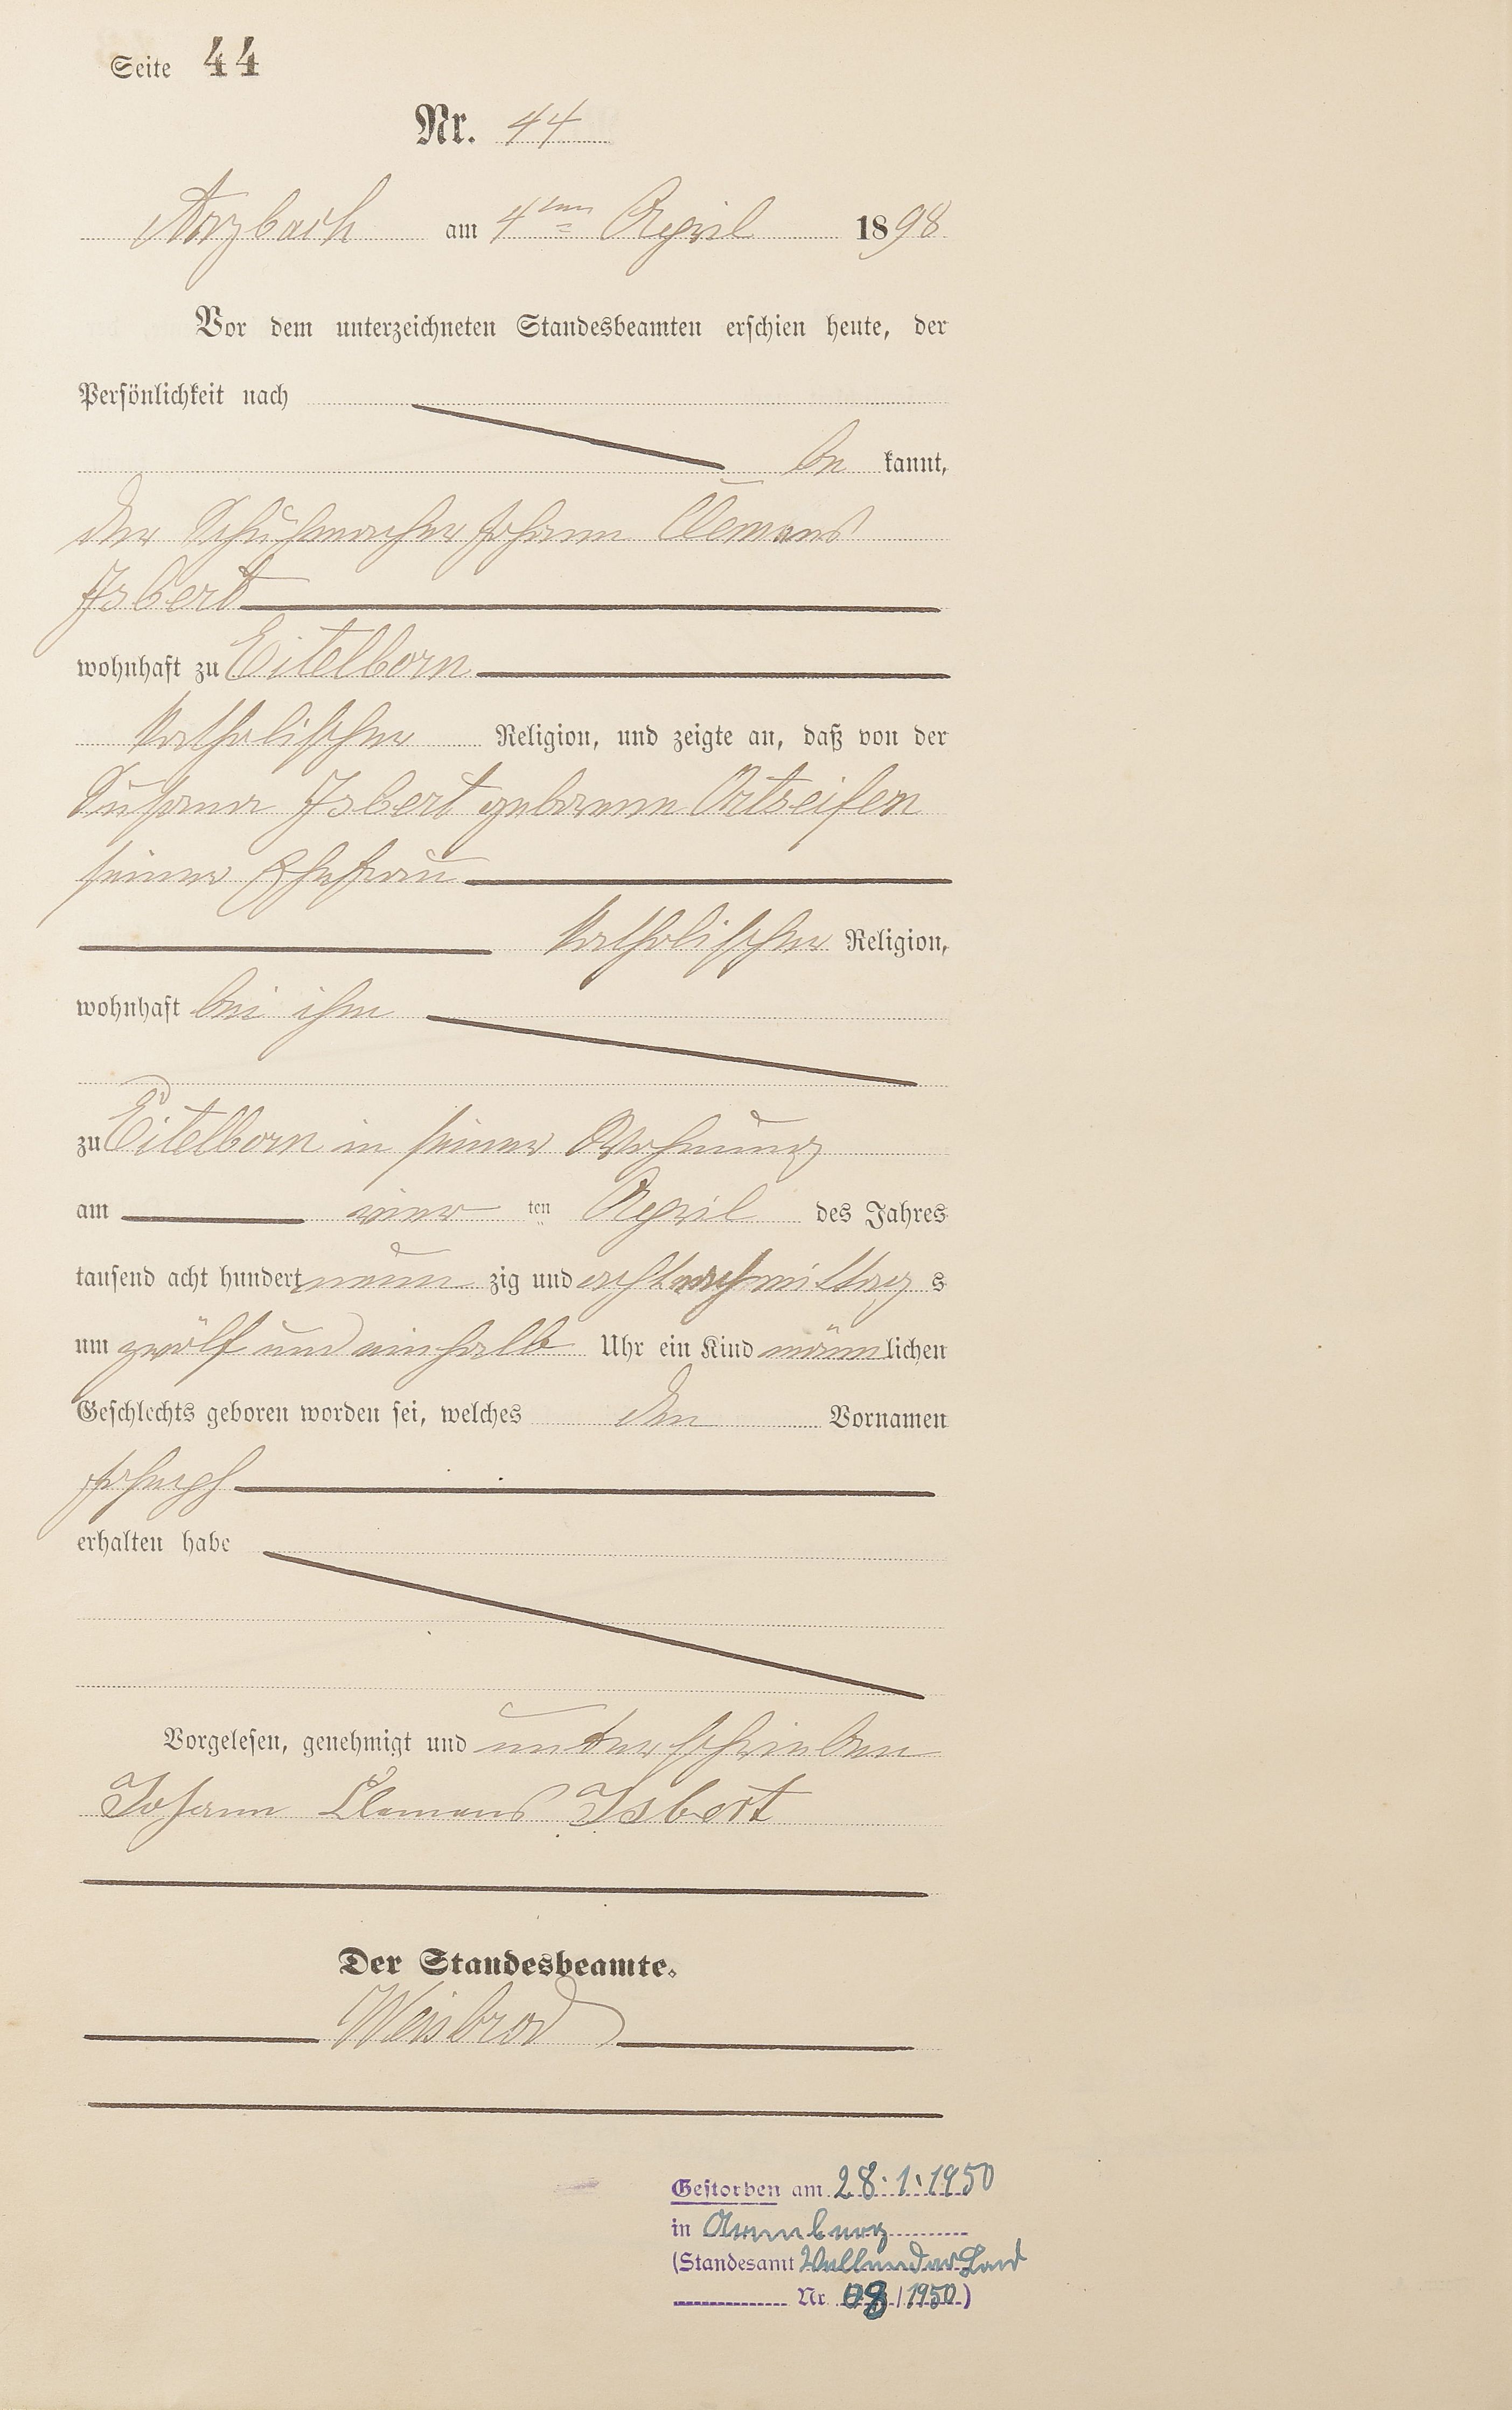 Seite 44
Nr. 44
Arzbach am 4ten April 1898
Vor dem unterzeichneten Standesbeamten erschien heute, der
Persönlichkeit nach
be kannt,
der Schuhmacher Johann Clemens
Isbert
wohnhaft zu Eitelborn
katholischer Religion, und zeigte an, daß von der
Susana Isbert geborenen Ortseifen
seiner Ehefrau
katholischer Religion,
wohnhaft bei ihm
zu Eitelborn in seiner Wohnung
am ten April des Jahres
tausend acht hundert neun zig und acht nachmittag s
um zwölf und einhalb Uhr ein Kind männlichen
Geschlechts geboren worden sei, welches den Vornamen
Joseph
erhalten habe
Vorgelesen, genehmigt und unterschrieben
Johann Clemens Isbert
Der Standesbeamte.
Weisbrod
Gestorben am 28.1.1950
in
(Standesamt Vallendar Land
Nr. /1950)